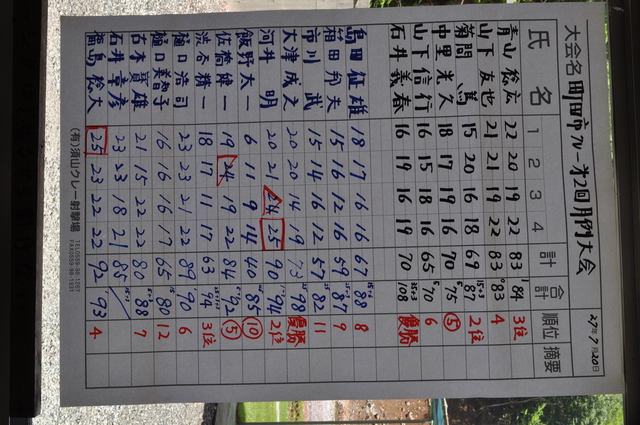 大会名 町田市クレー 第2回月例大会 27年7月20日
氏名 1 2 3 4 計 合計 順位 摘要
青山 22 20 19 22 83 +1 84 3位
山下友也 21 21 19 22 83 83 4
菊間 篤 15 20 16 18 69 15+3 87 2位
中里光久 18 17 19 16 70 +5 75 ⑤
山下信行 16 15 18 16 65 5 70 6
石井義春 16 19 16 19 70 35+3 108 優勝
島田征雄 18 17 16 16 67 88 8
箱田邦夫 15 16 12 16 59 87 9
市川 武 15 14 16 12 57 25 82 11
大津成之 20 20 14 19 73 25 98 優勝
河井 明 20 21 24 25 90 94 2位
飯野大一 6 11 9 14 40 45 85 ⑩
佐橋健一 19 24 19 22 84 92 ⑤
渋谷精一 18 17 11 17 63 94 3位
樋口浩司 23 23 21 22 89 +1 90 6
樋口美智子 16 16 16 17 65 15 80 12
古木寶雄 21 15 22 22 80 88 7
石井幸彦 23 23 18 21 85
福島稔大 25 23 22 22 92 93 4
(有)須山クレー射撃場 TEL0559-98-1287
FAX0559-98-1931